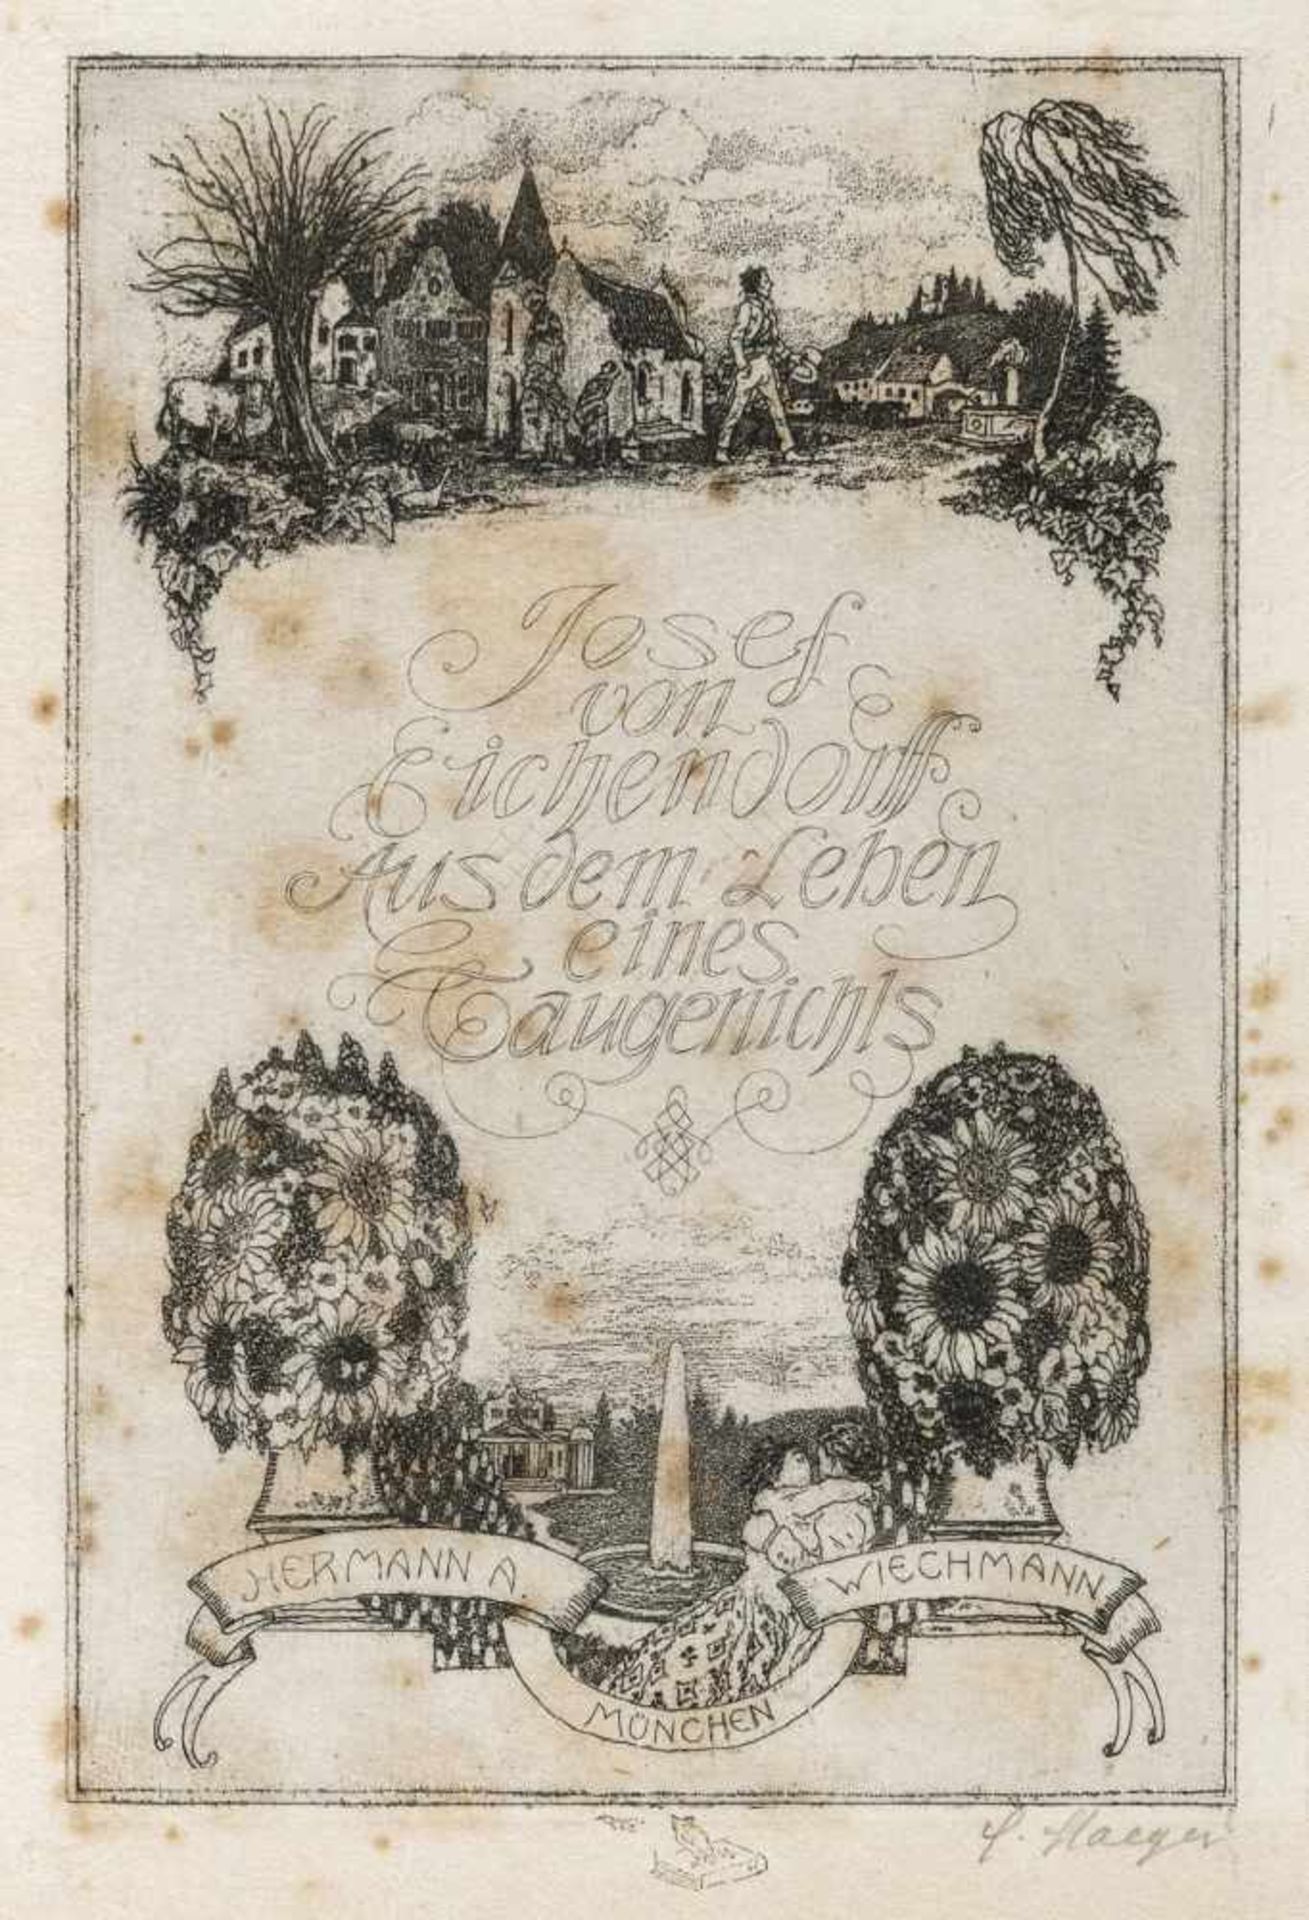 Josef
von
Eichendorff
Aus dem Leben
eines
Taugenichts
HERMANN A. WIECHMANN
MÜNCHEN